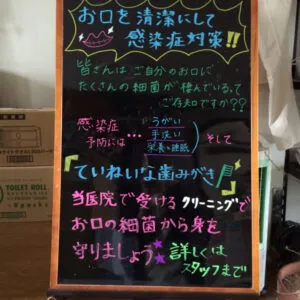 お口を清潔にして
感染症対策!!
皆さんはご自分のお口に
たくさんの細菌が棲んでいるって
ご存知ですか??
感染症
予防には…
うがい
手洗い
栄養・睡眠
そして
『ていねいな歯みがき』
当医院で受けるクリーニングで
お口の細菌から身を
守りましょう★★
詳しくは
スタッフまで
TOILET ROLL